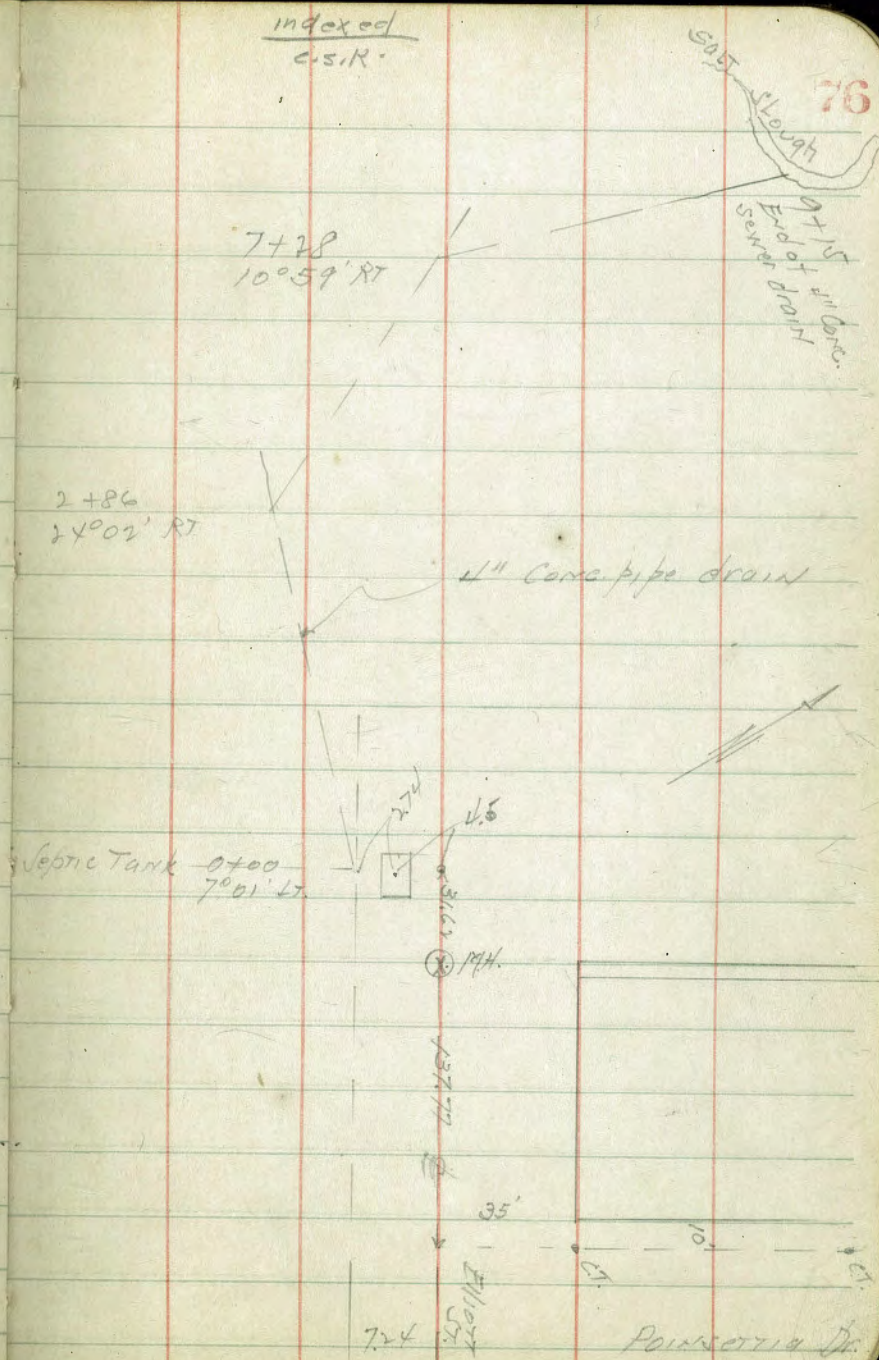 indexed
C.S.K.
76
Salt Slough
9+15
End of 4" Conc.
sewer drain
7+28
10°59' RT
2+86
24°02' RT
4" Conc. pipe drain
2.74
4.5
Septic Tank 0+00
7°01' LT.
31.63
M.H.
137.77
35'
10'
C.T.
C.T.
Elliott St.
7.24
Poinsettia Dr.